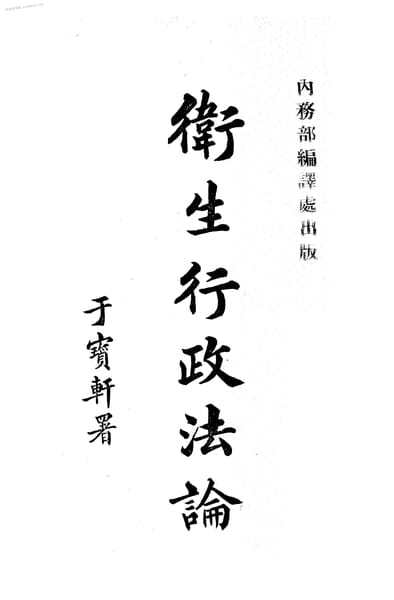 內務部編譯處出版
衛生行政法論
于寶軒署